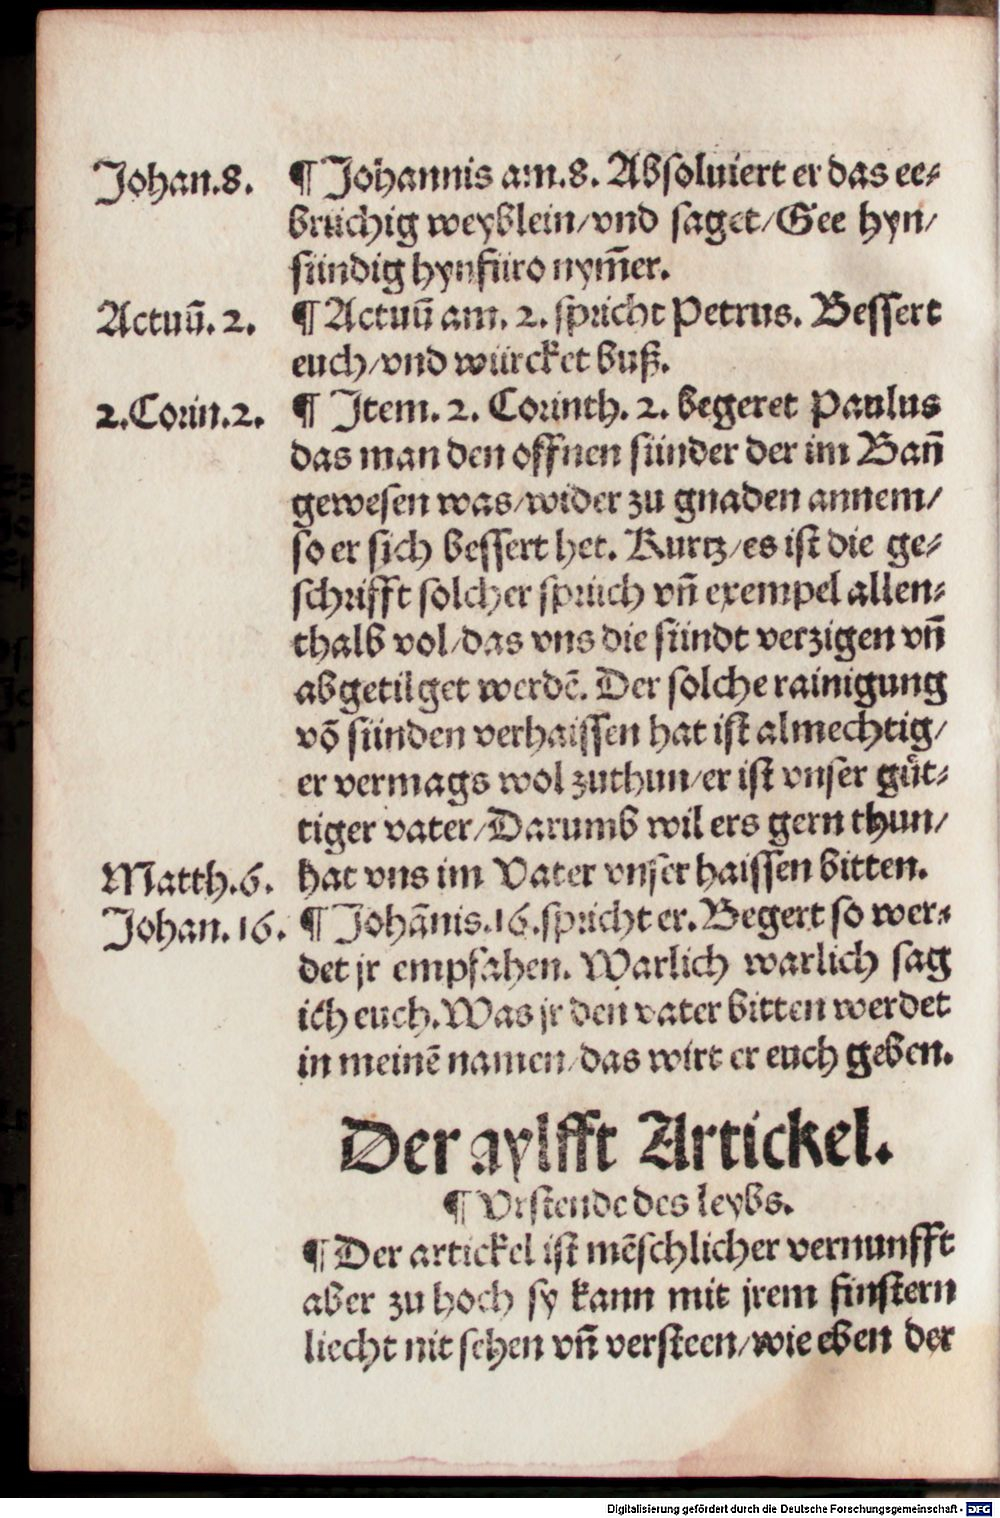 Johan.8.
¶ Johannis am.8. Absoluiert er das ee⸗
brüchig weyblein/vnd saget/Gee hyn/
sündig hynfüro nym̃er.
Actuũ. 2.
¶ Actuũ am. 2. spricht Petrus. Bessert
euch/vnd würcket buß.
2.Corin.2.
¶ Item. 2. Corinth. 2. begeret Paulus
das man den offnen sünder der im Bañ
gewesen was/wider zu gnaden annem/
so er sich bessert het. Kurtz/es ist die ge⸗
schrifft solcher sprüch vñ exempel allen⸗
thalb vol/das vns die sündt verzigen vñ
abgetilget werdẽ. Der solche rainigung
võ sünden verhaissen hat ist almechtig/
er vermags wol zuthun/er ist vnser gůt⸗
tiger vater/Darumb wil ers gern thun/
Matth.6.
hat vns im Vater vnser haissen bitten.
Johan. 16.
¶ Johãnis.16.spricht er. Begert so wer⸗
det jr empfahen. Warlich warlich sag
ich euch. Was jr den vater bitten werdet
in meinẽ namen/das wirt er euch geben.
Der aylfft Artickel.
¶ Vrstende des leybs.
¶ Der artickel ist mẽschlicher vernunfft
aber zu hoch sy kann mit jrem finstern
liecht nit sehen vñ versteen/wie eben der
Digitalisierung gefördert durch die Deutsche Forschungsgemeinschaft - DFG